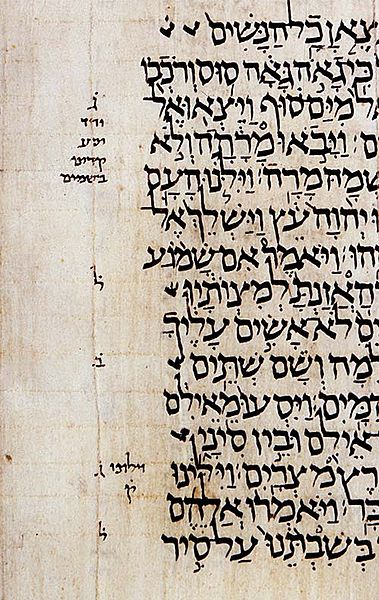 צאן כל הנשים
כי גאה גאה סוס ורכבו
ל מים סוף ויצאו אל
ם ויבאו מרתה ולא
שמה מרה וילנו העם
ו יהוה עץ וישלך אל
הו ויאמר אם שמוע
האזנת למצותיו
ים לא אשים עליך
למה ושם שתים
המים ויסעו מאילם
אילם ובין סיני
רץ מצרים וילינו
בר ויאמרו אלהם
בשבתנו על סיר
ג
בשמים
ל
ב
ג וילונו
ק
ל